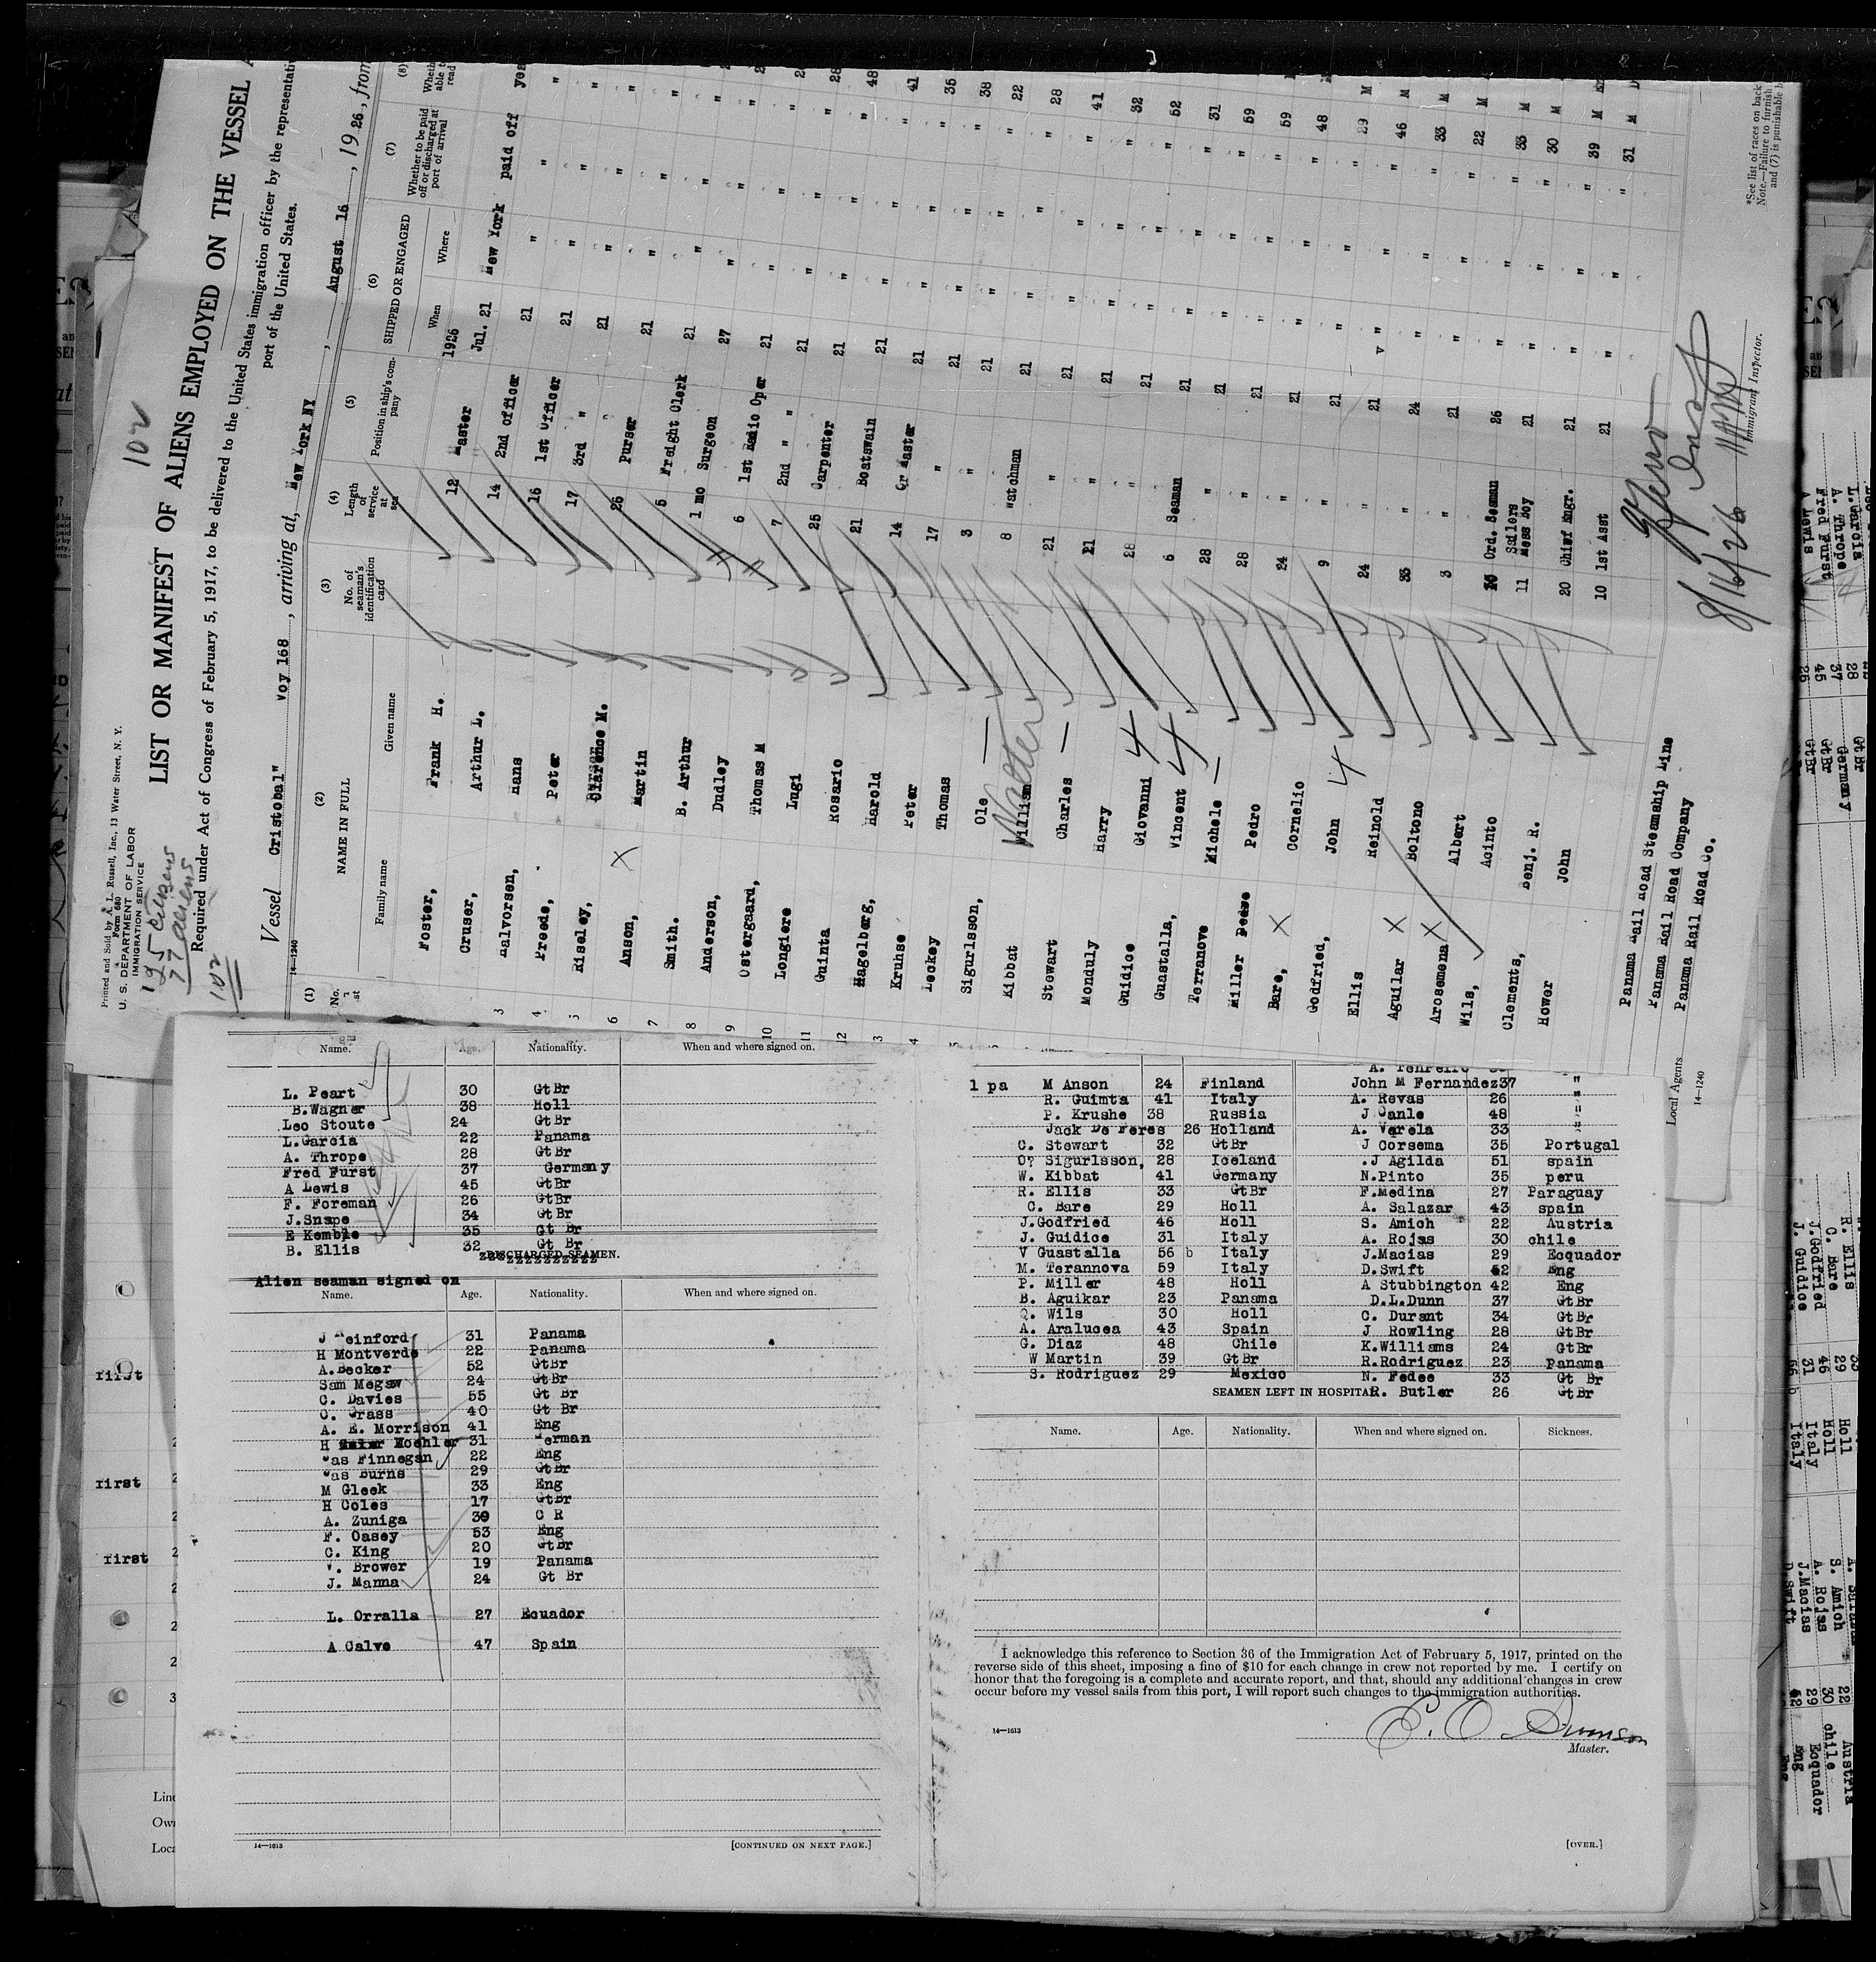 102
Printed and Sold by A. L. Russell, Inc., 13 Water Street, N. Y.
Form 680
U. S. DEPARTMENT OF LABOR
IMMIGRATION SERVICE
195 citizens
77 aliens
102
LIST OR MANIFEST OF ALIENS EMPLOYED ON THE VESSEL
Required under Act of Congress of February 5, 1917, to be delivered to the United States immigration officer by the representati
port of the United States.
Vessel Cristobal" Voy 168, arriving at, New York NY, August 16, 1926, from
14—1240
(1) (2) (3) (4) (5) (6) (7) (8)
No. NAME IN FULL No. of seaman's identification card Length of service at sea Position in ship's company SHIPPED OR ENGAGED Whether to be paid off or discharged at port of arrival Wheth able to read
Family name Given name When Where
1926
Foster, Frank H. 12 Master Jul. 21 New York paid off yes
Cruser, Arthur L. 14 2nd officer 21 " " "
3 Halvorsen, Hans 16 1st Officer 21 " " "
4 Preede, Peter 17 3rd " 21 " " "
5 Riseley, Clarence M. 26 Purser 21 " " "
6 Anson, Martin 5 Freight Clerk 21 " " "
7 Smith. B. Arthur 1 mo Surgeon 27 " " "
8 Anderson, Dudley 6 1st Radio Oper 21 " "
9 Ostergaard, Thomas M 7 2nd " " 21 " "
10 Longiere Lugi 25 Carpenter 21 " " 28
11 Guinta Rosario 21 Boatswain 21 " " 48
12 Hagelberg, Harold 14 Qr Master 21 " " 41
Kruhse Peter 17 " 21 " " 35
Leckey Thomas 3 " 21 " " 38
Sigurlsson, Ole 8 Watchman 21 " " 22
Kibbat William Walter 21 " 21 " " 28
Stewart Charles 21 " 21 " " 41
Monduly Harry 28 " 21 " " 32
Guidice Giovanni 6 Seaman 21 " " 52
Guastalla, Vincent 28 " 21 " " 31
Terranove Michele 28 " 21 " " 59
Miller Pedro 24 " 21 " " 59
Bare, Cornelio 9 " 21 " " 48
Godfried, John 24 " 21 " " 29 M
Ellis Reinold 33 " 24 " " 46 M
Aguilar Boltono 3 " 21 " " 33 M
Arosemena Albert Ord. Seaman 26 " " 22 M
Wils, Acinto 11 Sailers Mess Boy 21 " " 33 M
Clements, Benj. R. 20 Chief Engr. 21 " " 30 M
Hower John 10 1st Asst 21 " " 39 M
31 M
Panama Rail Road Steamship Line
Panama Rail Road Company
Local Agents Panama Rail Road Co.
14—1240
8/16/26
Immigrant Inspector.
*See list of races on back
Note.—Failure to furnish
and (7) is punishable b
Name. Age. Nationality. When and where signed on.
L. Peart 30 GtBr
B.Wagner 38 Holl
Leo Stoute 24 GtBr
L.Garcia 22 Panama
A. Thrope 28 GtBr
Fred Furst 37 Germany
A Lewis 45 GtBr
F. Foreman 26 GtBr
J.Snape 34 GtBr
E Kemble 35 Gt Br
B. Ellis 32 Gt Br
DISCHARGED SEAMEN.
Alien seaman signed on
Name. Age. Nationality. When and where signed on.
J Weinford 31 Panama
H Montverde 22 Panama
A.Becker 52 GtBr
Sam Megaw 24 GtBr
C. Davies 55 Gt Br
C. Grass 40 Gt Br
A. E. Morrison 41 Eng
H Koehler 31 German
Jas Finnegan 22 Eng
Jas Burns 29 GtBr
M Gleek 33 Eng
H Coles 17 GtBr
A. Zuniga 39 C R
F. Casey 53 Eng
C. King 20 GtBr
V. Brower 19 Panama
J. Manna 24 Gt Br
L. Orralla 27 Ecuador
A Calve 47 Spain
14—1613
[CONTINUED ON NEXT PAGE.]
1 pa M Anson 24 Finland John M Fernandez 37 "
R. Guimta 41 Italy A. Revas 26 "
P. Krushe 38 Russia J Canle 48 "
Jack De Feres 26 Holland A. Varela 33 "
C. Stewart 32 GtBr J Corsema 35 Portugal
O? Sigurlsson, 28 Iceland .J Agilda 51 spain
W. Kibbat 41 Germany N.Pinto 35 peru
R. Ellis 33 GtBr F.Medina 27 Paraguay
C. Bare 29 Holl A. Salazar 43 spain
J.Godfried 46 Holl S. Amich 22 Austria
J. Guidice 31 Italy A. Rojas 30 chile
V Guastalla 56 b Italy J.Macias 29 Ecquador
M. Terannova 59 Italy D.Swift 42 Eng
P. Miller 48 Holl A Stubbington 42 Eng
B. Aguikar 23 Panama D.L.Dunn 37 GtBr
Q. Wils 30 Holl C. Durant 34 GtBr
A. Aralucea 43 Spain J. Rowling 28 GtBr
G. Diaz 48 Chile K.Williams 24 GtBr
W Martin 39 GtBr R.Rodriguez 23 Panama
S. Rodriguez 29 Mexico N. Fedee 33 Gt Br
SEAMEN LEFT IN HOSPITAL R. Butler 26 GtBr
Name. Age. Nationality. When and where signed on. Sickness.
I acknowledge this reference to Section 36 of the Immigration Act of February 5, 1917, printed on the
reverse side of this sheet, imposing a fine of $10 for each change in crew not reported by me. I certify on
honor that the foregoing is a complete and accurate report, and that, should any additional changes in crew
occur before my vessel sails from this port, I will report such changes to the immigration authorities.
14—1613
E. O. Swenson
Master.
[OVER.]
first
first
first
L.Garcia 28 GtBr
A. Thrope 37 Germany
Fred Furst 45 GtBr
A Lewis 26 GtBr
R. Ellis
C. Bare 29 Holl
J.Godfried 46 Holl
J. Guidice 31 Italy
S. Amich 22 Austria
A. Rojas 30 chile
J.Macias 29 Ecquador
D.Swift 42 Eng